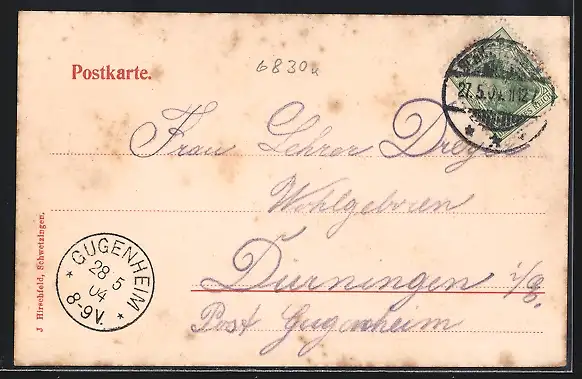 6830u
Postkarte.
27.5.04.11-12
Frau Lehrer Dreyer
Wohlgeboren
Dürningen i/E.
Post Gugenheim
GUGENHEIM
28 5
04
8-9V.
J Hirschfeld, Schwetzingen.